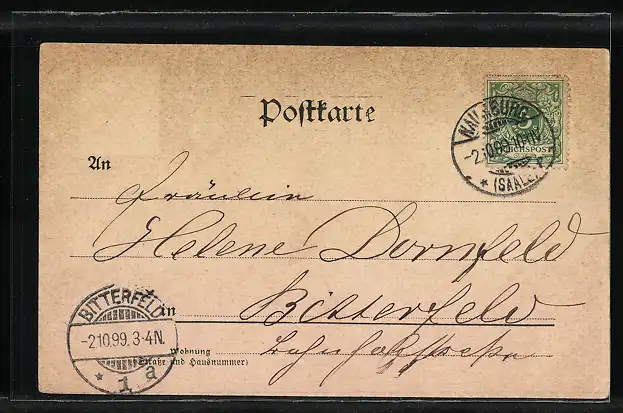 Postkarte
NAUMBURG
-2.10.99. 10-11V.
* (SAALE)
REICHSPOST
An
Fräulein
Helene Dornfeld
in Bitterfeld
Wohnung
(Straße und Hausnummer)
Bahnhofstraße
BITTERFELD
-2.10.99. 3-4N.
* 1 a